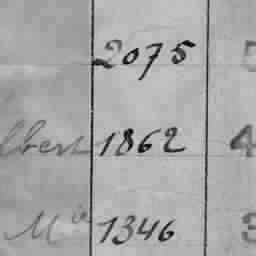 2075
lbert 1862 4
Mce 1346 3